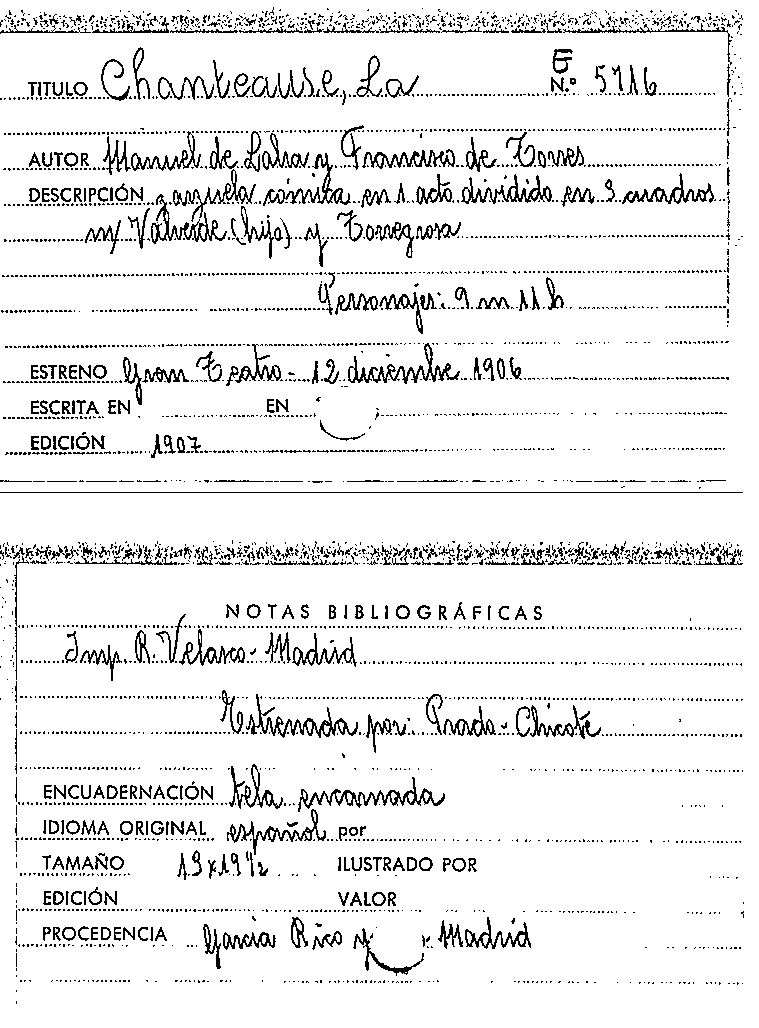 TITULO Chanteause, La E N.º 5716
AUTOR Manuel de Labra y Francisco de Torres
DESCRIPCIÓN zarzuela cómica en 1 acto dividido en 3 cuadros
m/ Valverde (hijo) y Torregrosa
Personajes: 9 m 11 h
ESTRENO Gran Teatro - 12 diciembre 1906
ESCRITA EN EN
EDICIÓN 1907
NOTAS BIBLIOGRÁFICAS
Imp. R. Velasco - Madrid
Estrenada por: Prado - Chicote
ENCUADERNACIÓN tela encarnada
IDIOMA ORIGINAL español por
TAMAÑO 13x19½ ILUSTRADO POR
EDICIÓN VALOR
PROCEDENCIA Garcia Rico y Madrid